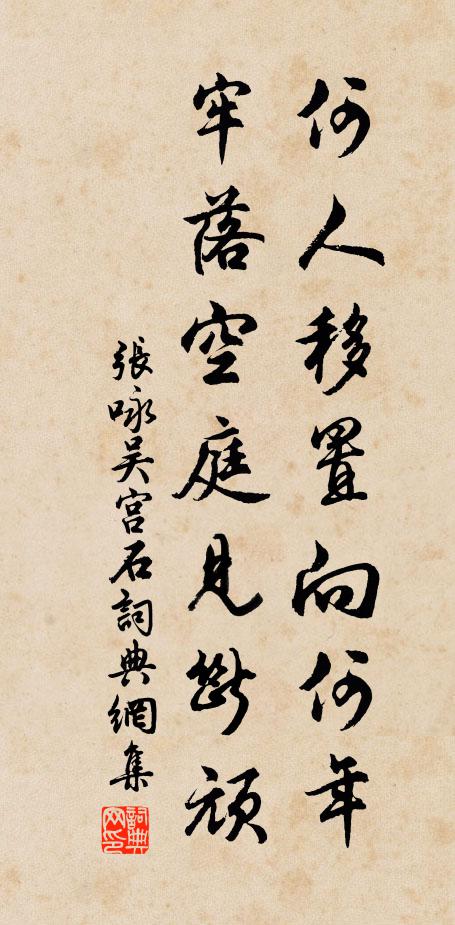 何人移置向何年
牢落空庭見斷頑
張咏吴宫石詞典網集
詞典网印